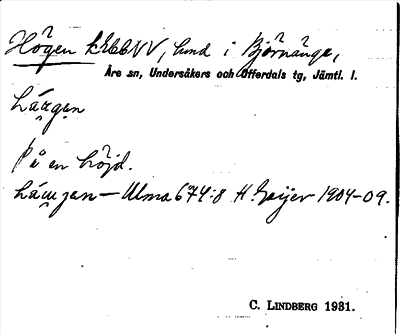 Högen kSbbNV, lund i Björnänge,
Åre sn, Undersåkers och Offerdals tg, Jämtl. l.
På en höjd.
Ulma 674:8 H. Geijer 1904-09.
C. LINDBERG 1931.